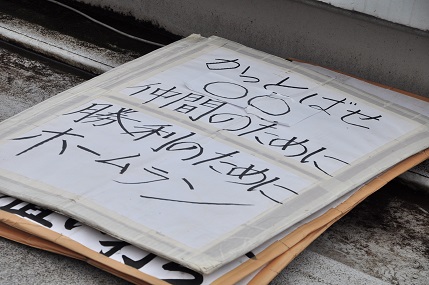 かっとばせ
〇〇
仲間のために
勝利のために
ホームラン